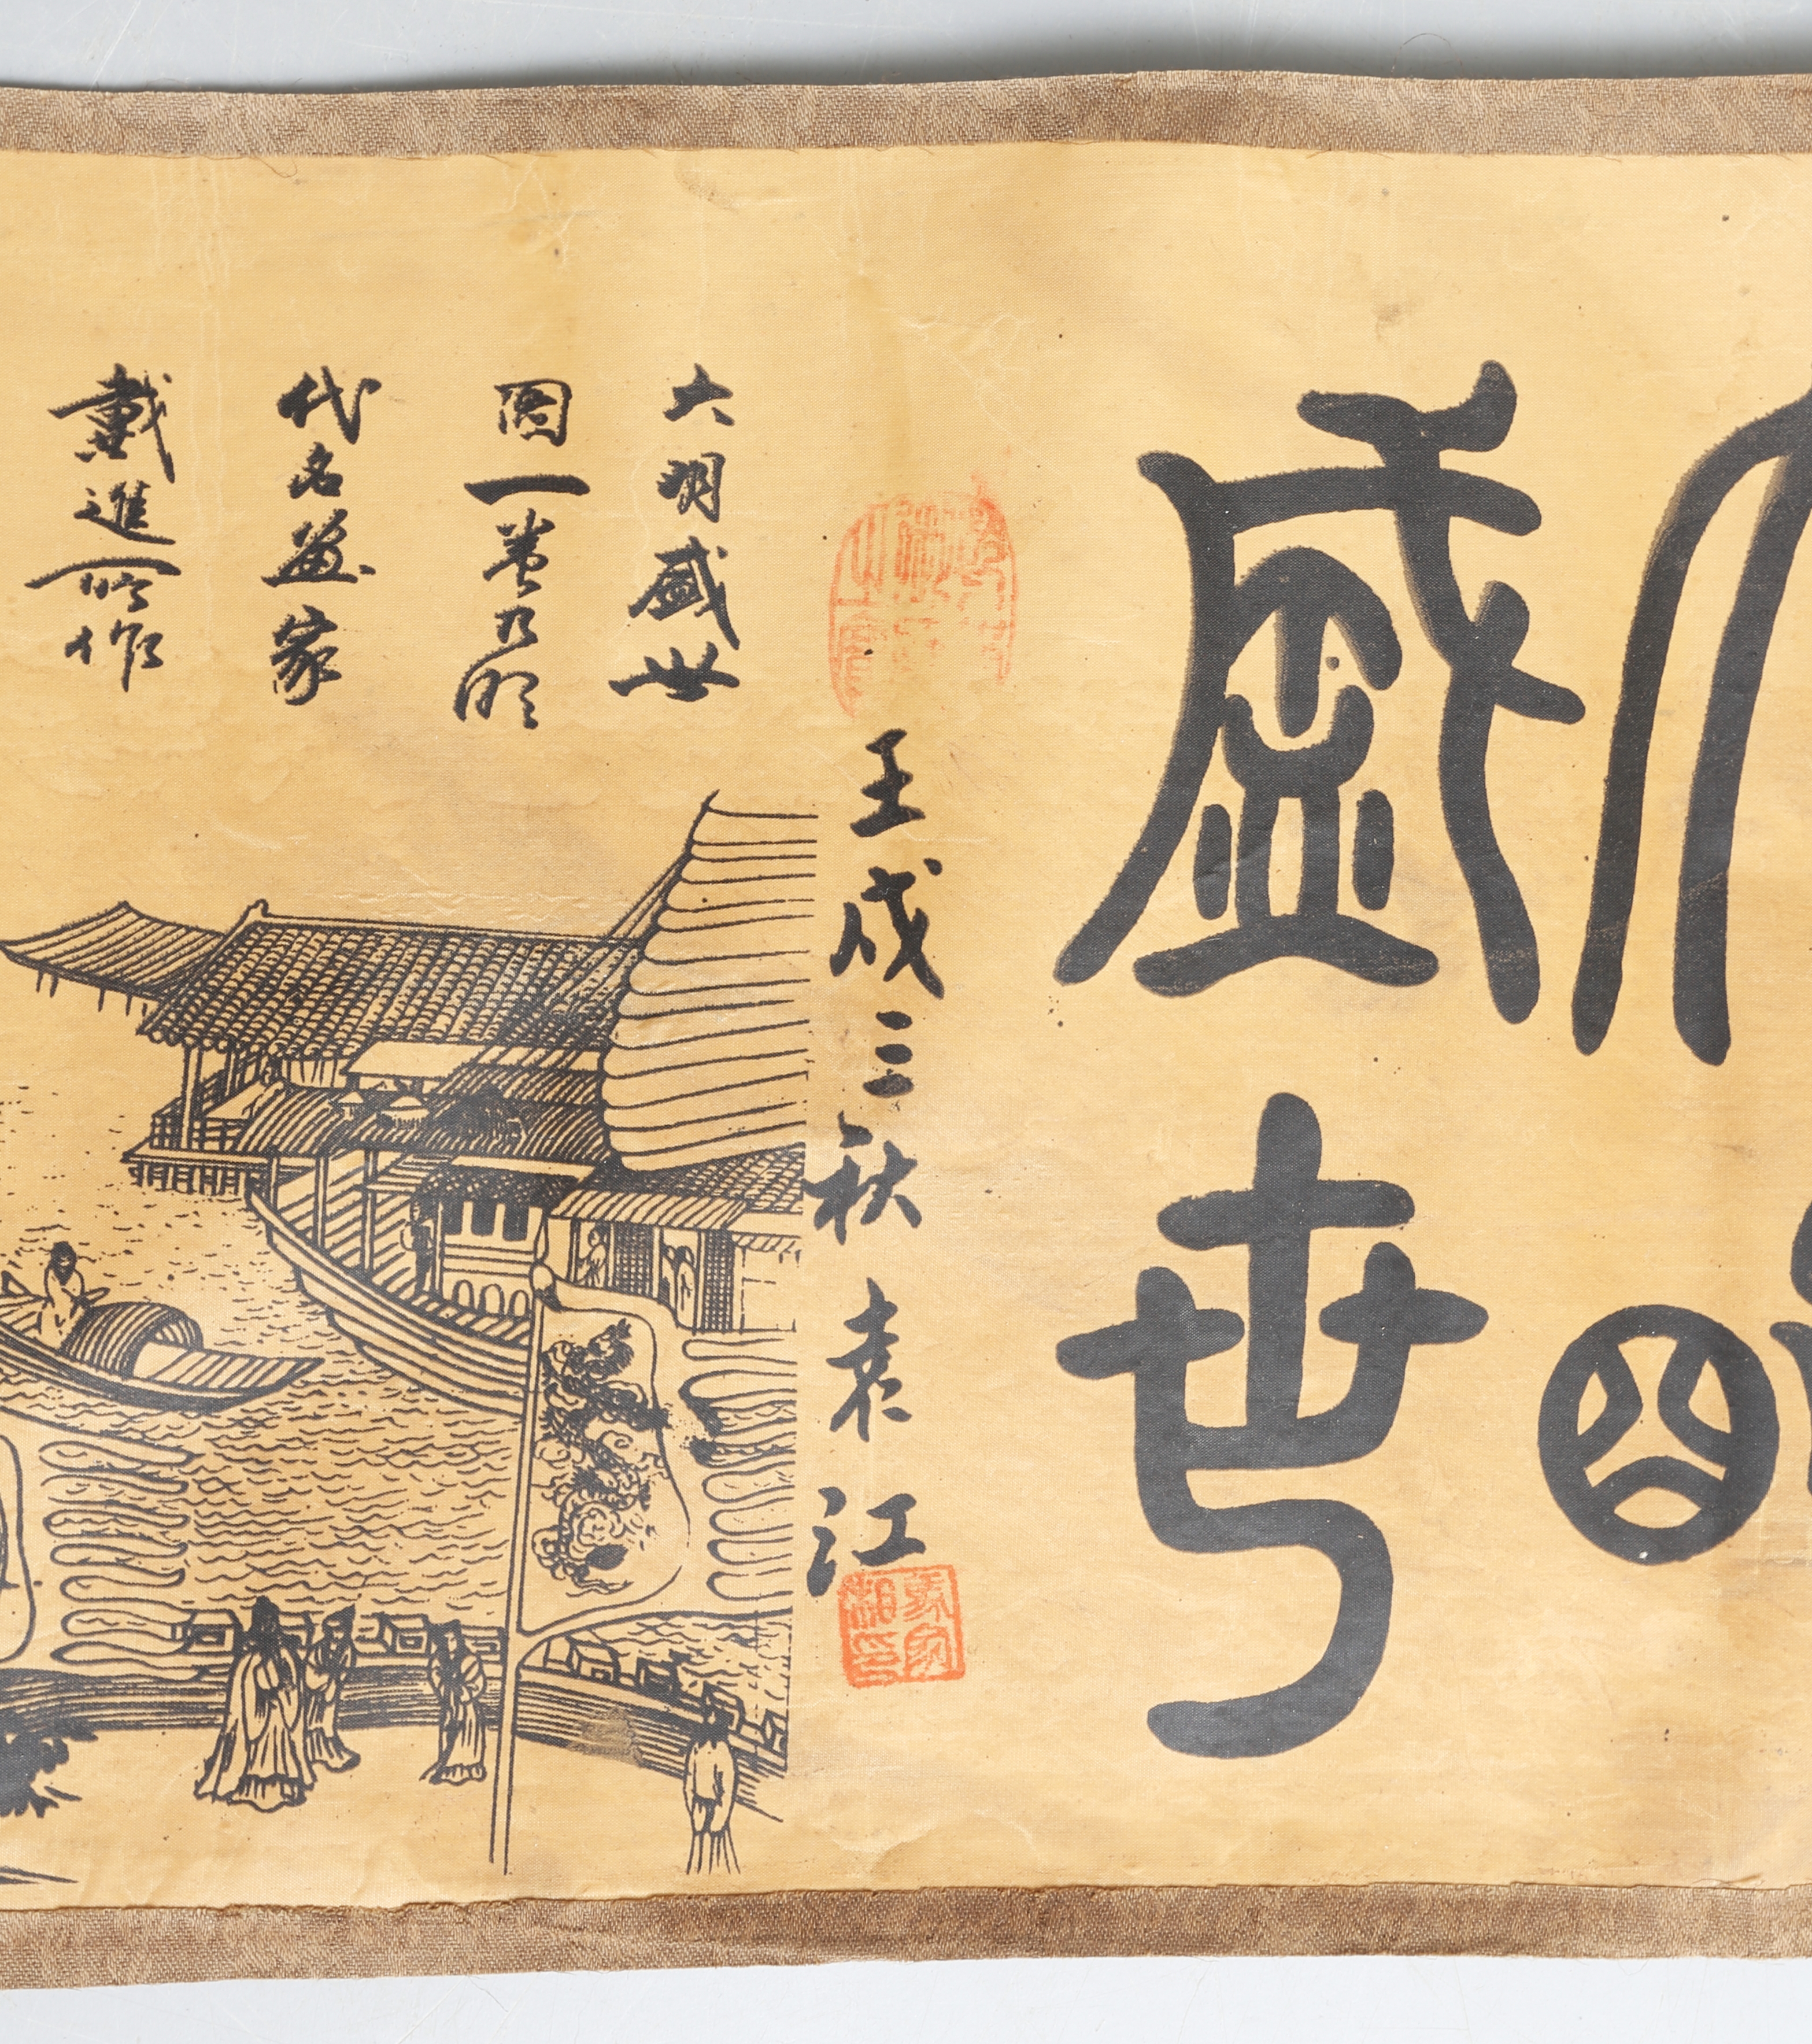 大明
盛世
壬戌三秋 袁江
大明盛世
图一卷乃明
代名画家
戴進所作